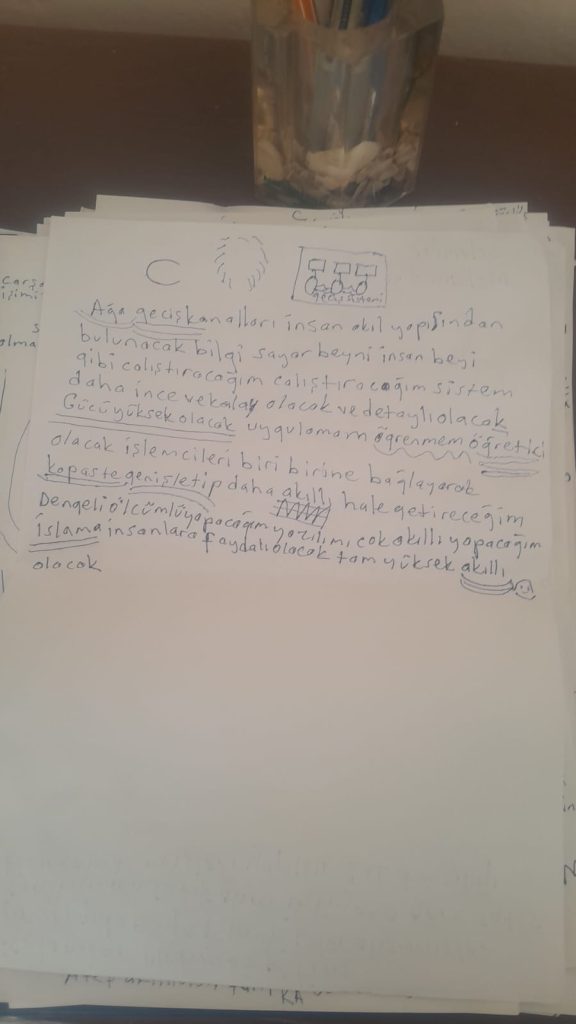 C
geçiş sistemi
Ağa geçiş kanalları insan akıl yapısından
bulunacak bilgi sayar beyni insan beyi
gibi calıştıracağım calıştıracağım sistem
daha ince ve kalay olacak ve detaylı olacak
Gücü yüksek olacak uygulamam öğrenmem öğretici
olacak işlemcileri biri birine bağlayarak
kapaste genişletip daha akıllı hale getireceğim
Dengeli ölcümlü yapacağım yazılımı cok akıllı yapacağım
İslama insanlara faydalı olacak tam yüksek akıllı
olacak